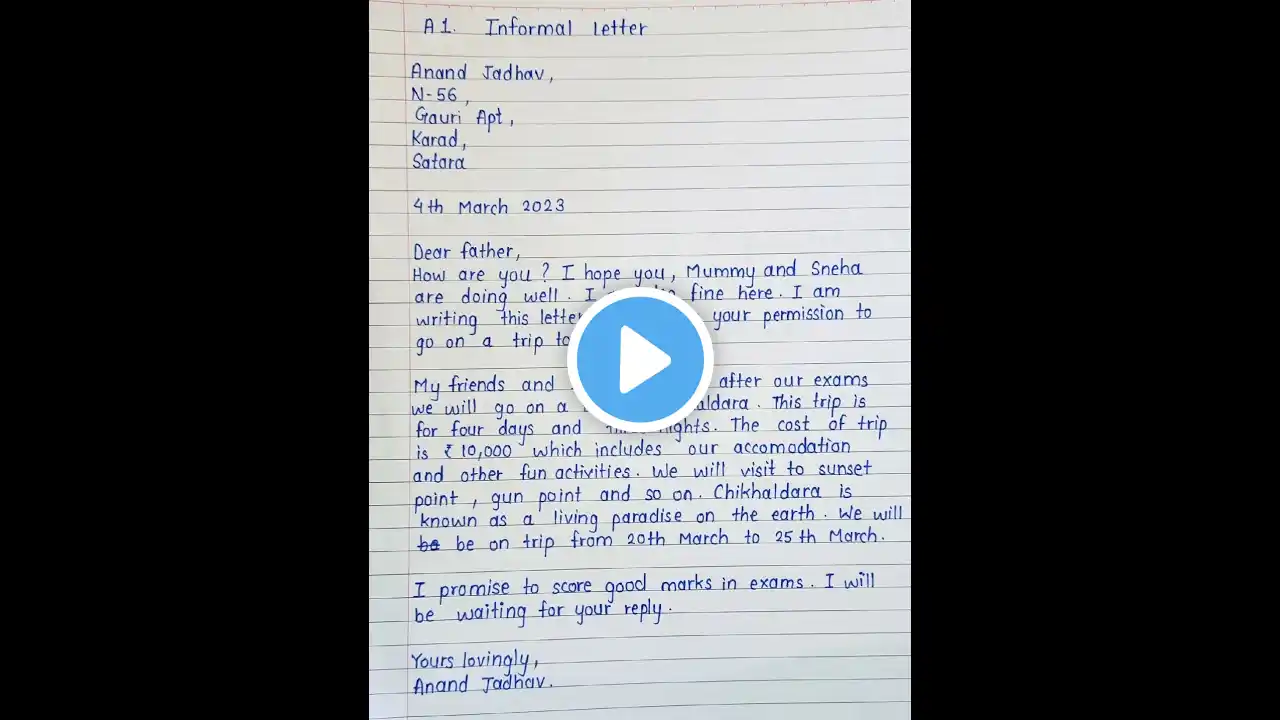 A1. Informal letter
Anand Jadhav,
N-56,
Gauri Apt,
Karad,
Satara
4th March 2023
Dear father,
How are you? I hope you, Mummy and Sneha
are doing well. I fine here. I am
writing this letter your permission to
go on a trip to
My friends and after our exams
we will go on a This trip is
for four days and nights. The cost of trip
is ₹10,000 which includes our accomodation
and other fun activities. We will visit to sunset
point, gun point and so on. Chikhaldara is
known as a living paradise on the earth. We will
be be on trip from 20th March to 25th March.
I promise to score good marks in exams. I will
be waiting for your reply.
Yours lovingly,
Anand Jadhav.